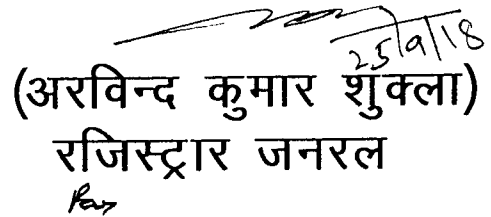 25/9/18
(अरविन्द कुमार शुक्ला)
रजिस्ट्रार जनरल